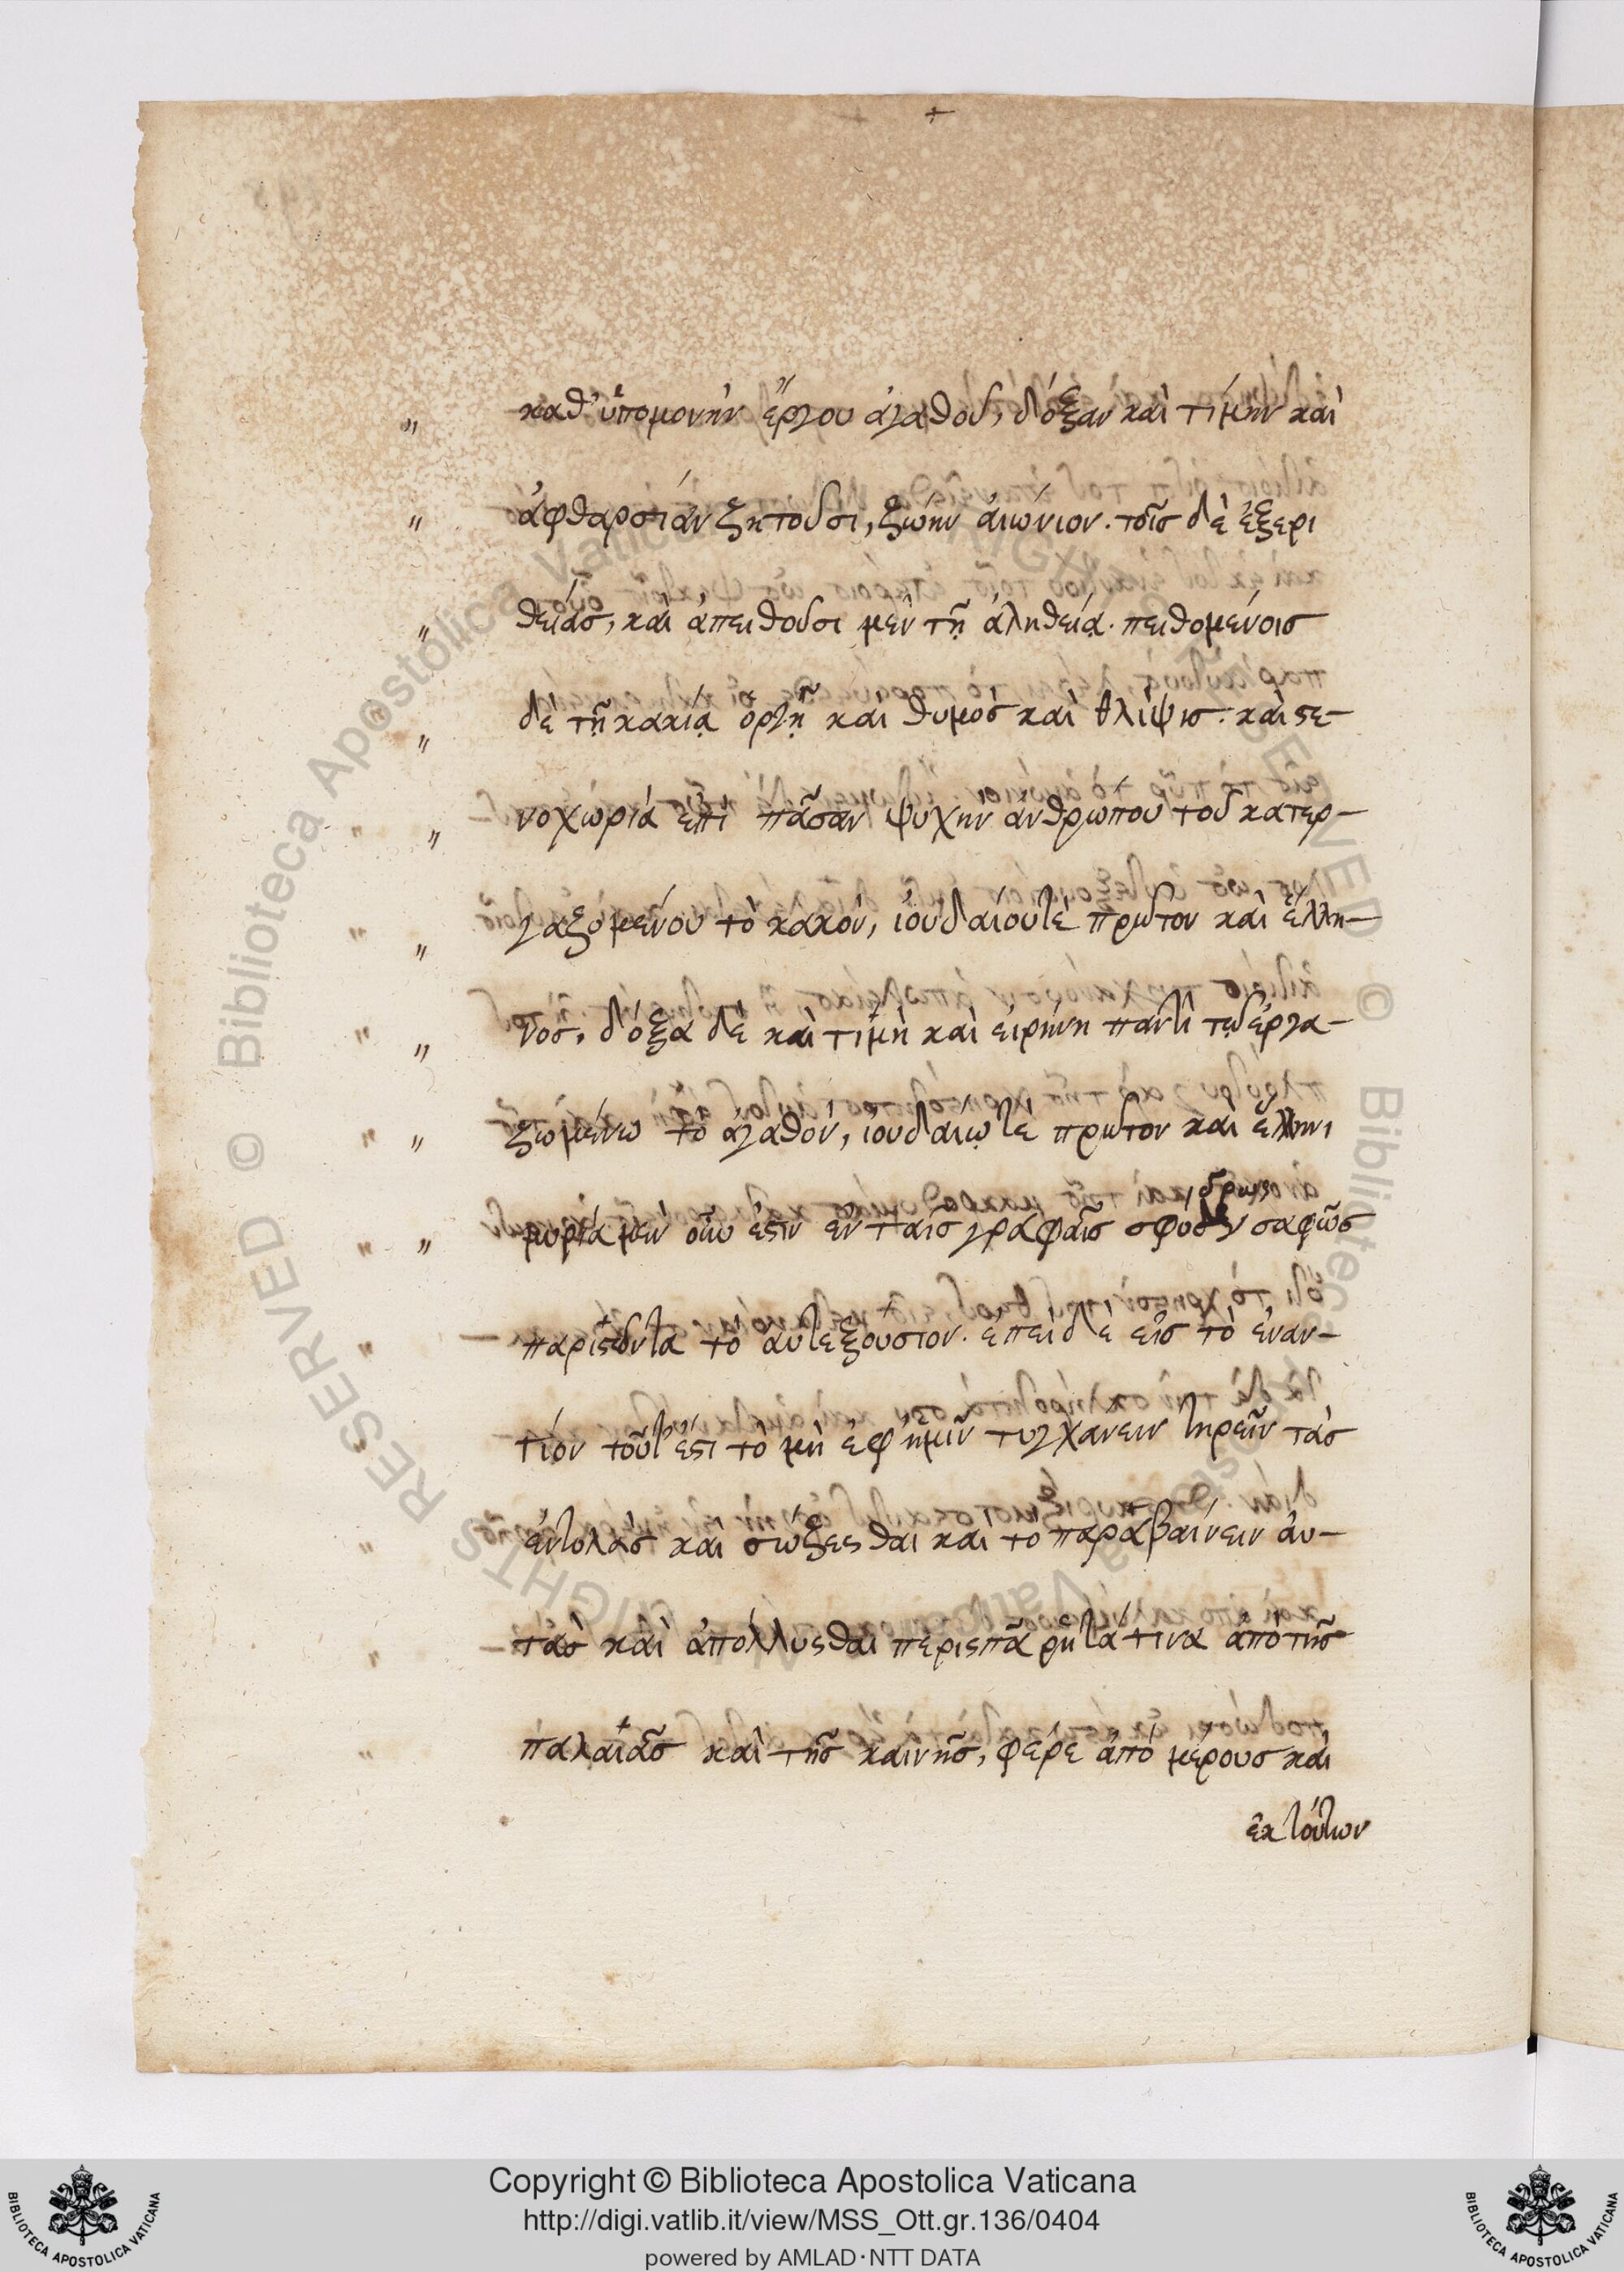 καθ' ὑπομονὴν ἔργου ἀγαθοῦ, δόξαν καὶ τιμὴν καὶ
ἀφθαρσίαν ζητοῦσι, ζωὴν αἰώνιον. τοῖς δὲ ἐξερι
θείας, καὶ ἀπειθοῦσι μὲν τῇ ἀληθείᾳ. πειθομένοις
δὲ τῇ κακίᾳ ὀργῇ καὶ θυμὸς καὶ θλίψις. καὶ στε-
νοχωρία ἐπὶ πᾶσαν ψυχὴν ἀνθρώπου τοῦ κατερ-
γαζομένου τὸ κακόν, ἰουδαίου τὲ πρῶτον καὶ ἕλλη-
νος. δόξα δὲ καὶ τιμὴ καὶ εἰρήνη παντὶ τῷ ἐργα-
ζομένω τὸ ἀγαθόν, ἰουδαίῳ τὲ πρῶτον καὶ ἕλληνι
μυρία μὲν οὖν ἐστιν ἐν ταῖς γραφαῖς σαφῶς
παριστῶντα τὸ αὐτεξούσιον. ἐπεὶ δὲ εἰς τὸ ἐναν-
τίον τοῦτ' ἐστι τὸ μὴ ἐφ' ἡμῖν τυγχάνειν τηρεῖν τὰς
ἐντολὰς καὶ σώζεσθαι καὶ τὸ παραβαίνειν αὐ-
τὰς καὶ ἀπόλλυσθαι περισπᾶ ῥητά τινα ἀπὸ τῆς
παλαιᾶς καὶ τῆς καινῆς, φέρε ἀπὸ μέρους καὶ
ἐκ τούτων
Copyright © Biblioteca Apostolica Vaticana
http://digi.vatlib.it/view/MSS_Ott.gr.136/0404
powered by AMLAD·NTT DATA